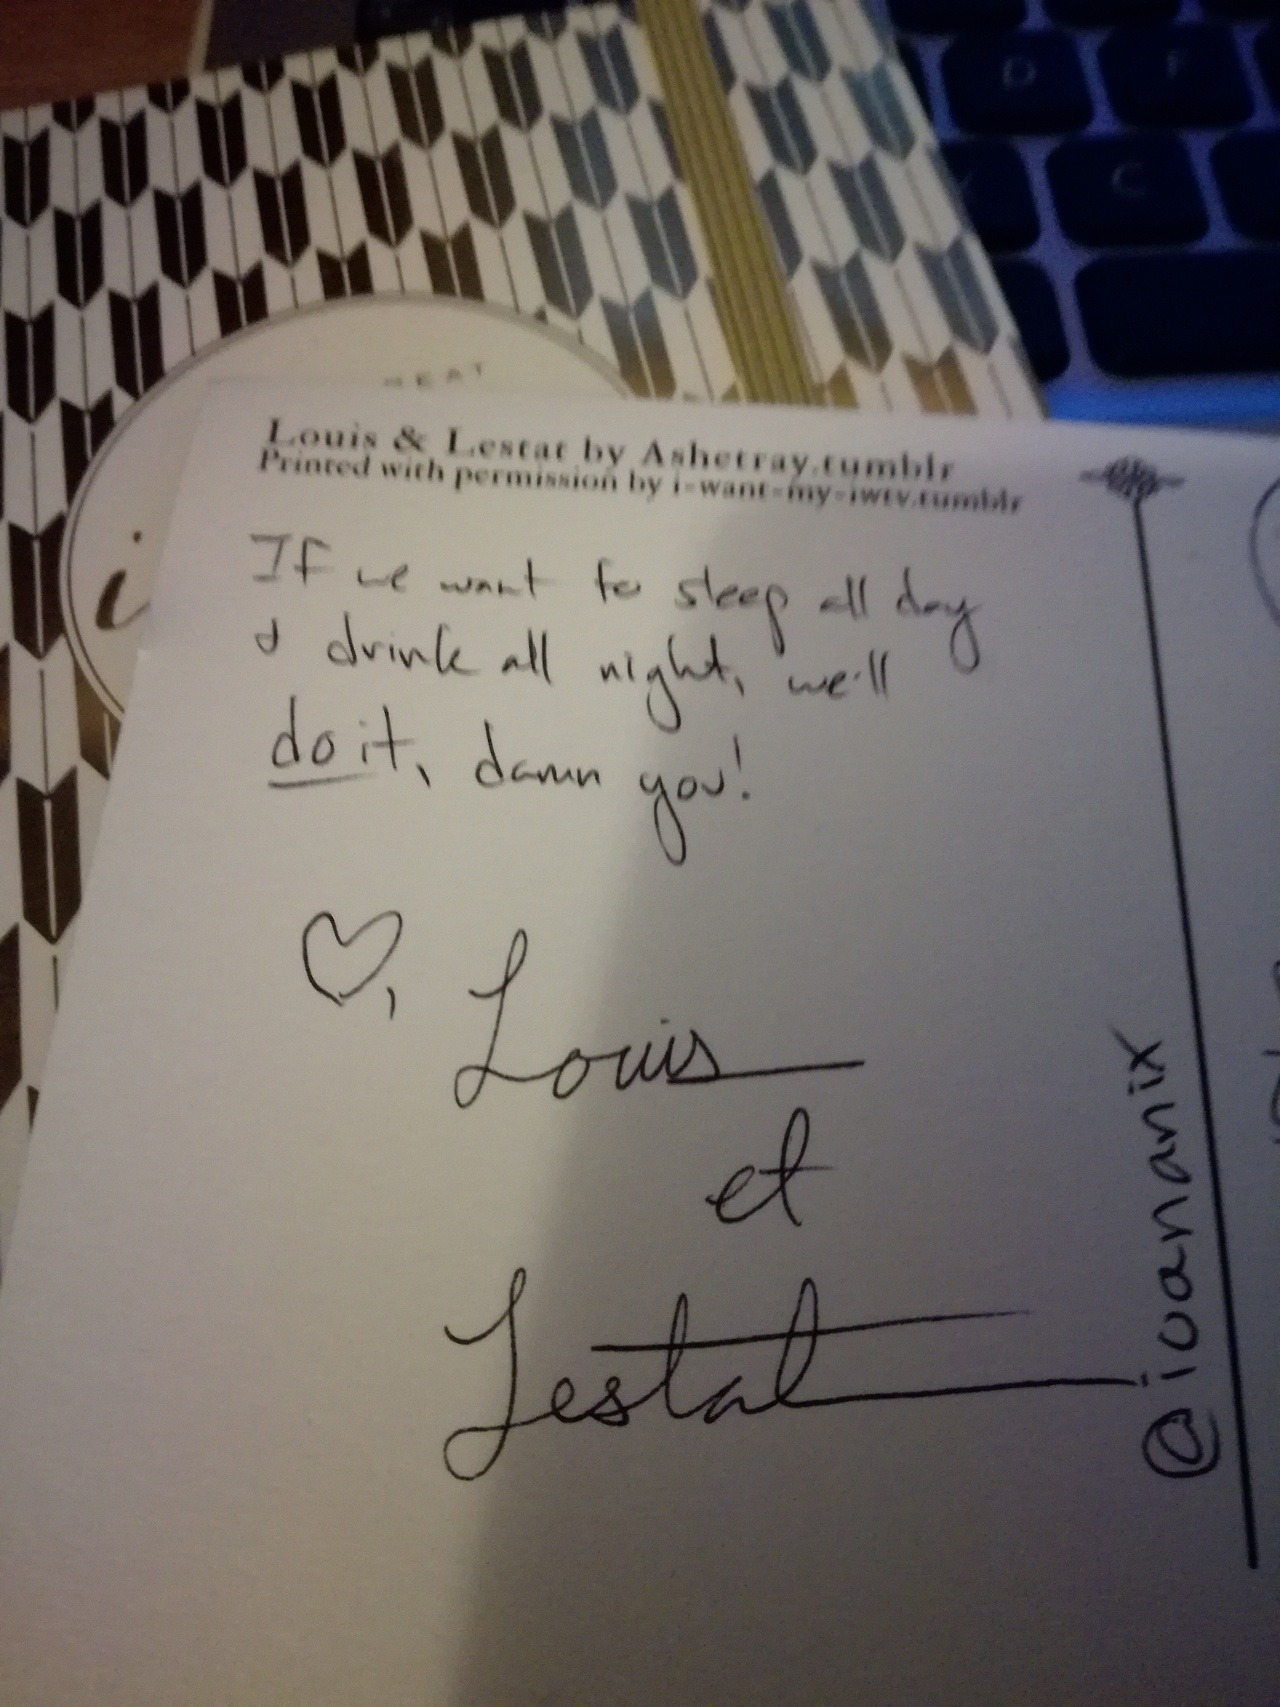 Louis & Lestat by Ashetray.tumblr
Printed with permission by i-want-my-iwtv.tumblr
If we want to sleep all day
& drink all night, we'll
do it, damn you!
♡, Louis
et
Lestat
@ioananix
D
F
C